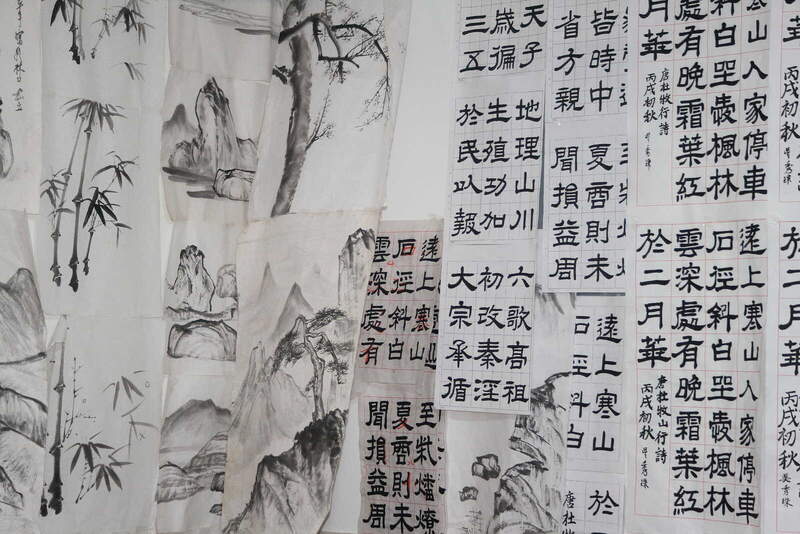 山人家停車
斜白坐愛楓林
處有晚霜葉紅
月華
唐杜牧行詩
丙戌初秋
遠上寒山人家停車
石徑斜白坐愛楓林
雲深處有晚霜葉紅
於二月華
唐杜牧山行詩
丙戌初秋
於二月華
丙戌初秋
皆時中
省方親
夏商則未
聞損益周
遠上寒山
石徑斜白
於
唐杜
天子
歲徧
三五
地理山川
生殖功加
於民以報
六歌高祖
初改秦淫
大宗承循
遠上寒山
石徑斜白
雲深處有
至柴燔燎
夏商則未
聞損益周